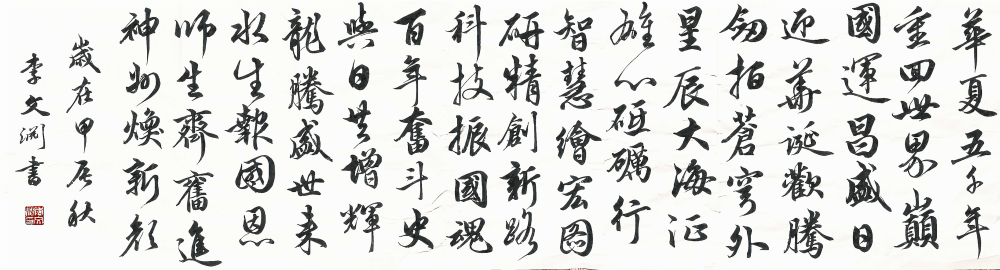 華夏五千年
重回世界巔
國運昌盛日
迎華誕歡騰
劍指蒼穹外
星辰大海征
雄心砥礪行
智慧繪宏圖
研精創新路
科技振國魂
百年奮斗史
與日共增輝
龍騰盛世来
水生報國恩
師生齊奮進
神州煥新顏
歲在甲辰秋
李文淵書